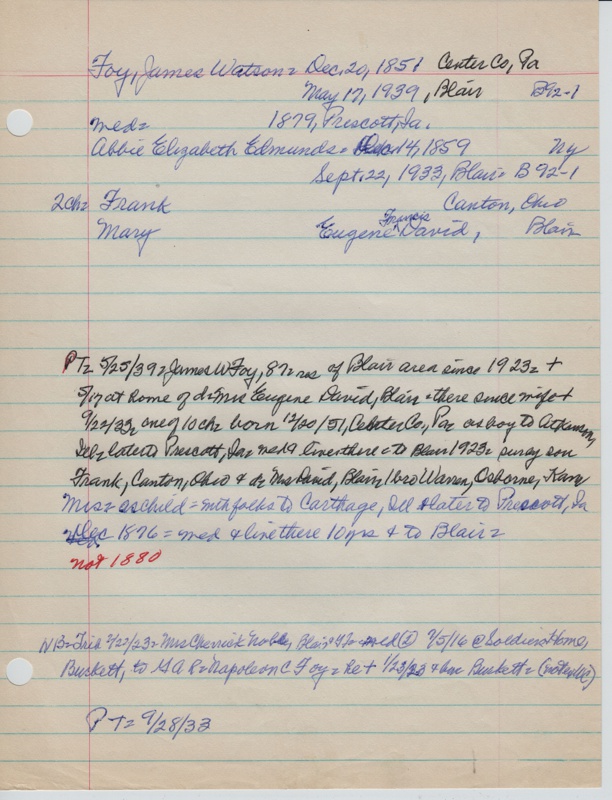 Foy, James Watson = Dec. 20, 1851 Center Co, Pa
May 17, 1939, Blair B92-1
med = 1879, Prescott, Ia.
Abbie Elizabeth Edmunds = 14, 1859 Ny
Sept. 22, 1933, Blair = B 92-1
2ch = Frank Canton, Ohio
Mary Eugene Francis David, Blair
PT = 5/25/39 = James W Foy, 87 = res of Blair area since 1923 = +
5/17 at home of d = Mrs Eugene David, Blair = there since wife +
9/22/33, one of 10 ch = born 12/20/51, Center Co, Pa = as boy to Atkinson,
Ill = later to Prescott, Ia = med & live there = to Blair 1923 = surv by son
Frank, Canton, Ohio & d = Mrs David, Blair, 1 bro Warren, Osborne, Kans
Mrs = as child = with folks to Carthage, Ill & later to Prescott, Ia
1876 = med & live there 10 yrs & to Blair =
not 1880
NB = Trib 2/22/23 = Mrs Cherrick Noble, Blair med (2) 7/5/16 @ Soldiers Home,
Burkett, to GAR = Napoleon C Foy = he + 1/23/23 & bur Burkett =
PT = 9/28/33